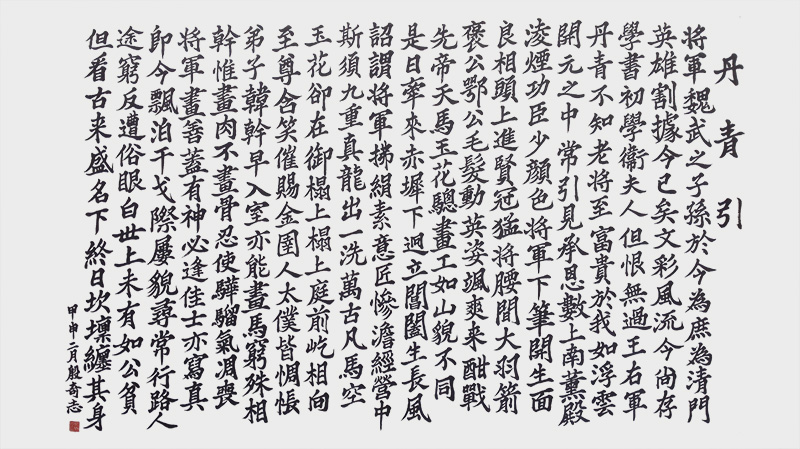 丹青引
將軍魏武之子孫於今為庶為清門
英雄割據今已矣文彩風流今尚存
學書初學衛夫人但恨無過王右軍
丹青不知老將至富貴於我如浮雲
開元之中常引見承恩數上南薰殿
淩煙功臣少顏色將軍下筆開生面
良相頭上進賢冠猛將腰間大羽箭
褒公鄂公毛髮動英姿颯爽来酣戰
先帝天馬玉花驄畫工如山貌不同
是日牽來赤墀下迥立閶闔生長風
詔謂將軍拂絹素意匠慘澹經營中
斯須九重真龍出一洗萬古凡馬空
玉花卻在御榻上榻上庭前屹相向
至尊含笑催賜金圉人太僕皆惆悵
弟子韓幹早入室亦能畫馬窮殊相
幹惟畫肉不畫骨忍使驊騮氣凋喪
將軍畫善蓋有神必逢佳士亦寫真
即今飄泊干戈際屢貌尋常行路人
途窮反遭俗眼白世上未有如公貧
但看古来盛名下終日坎壈纏其身
甲申二月殷奇志